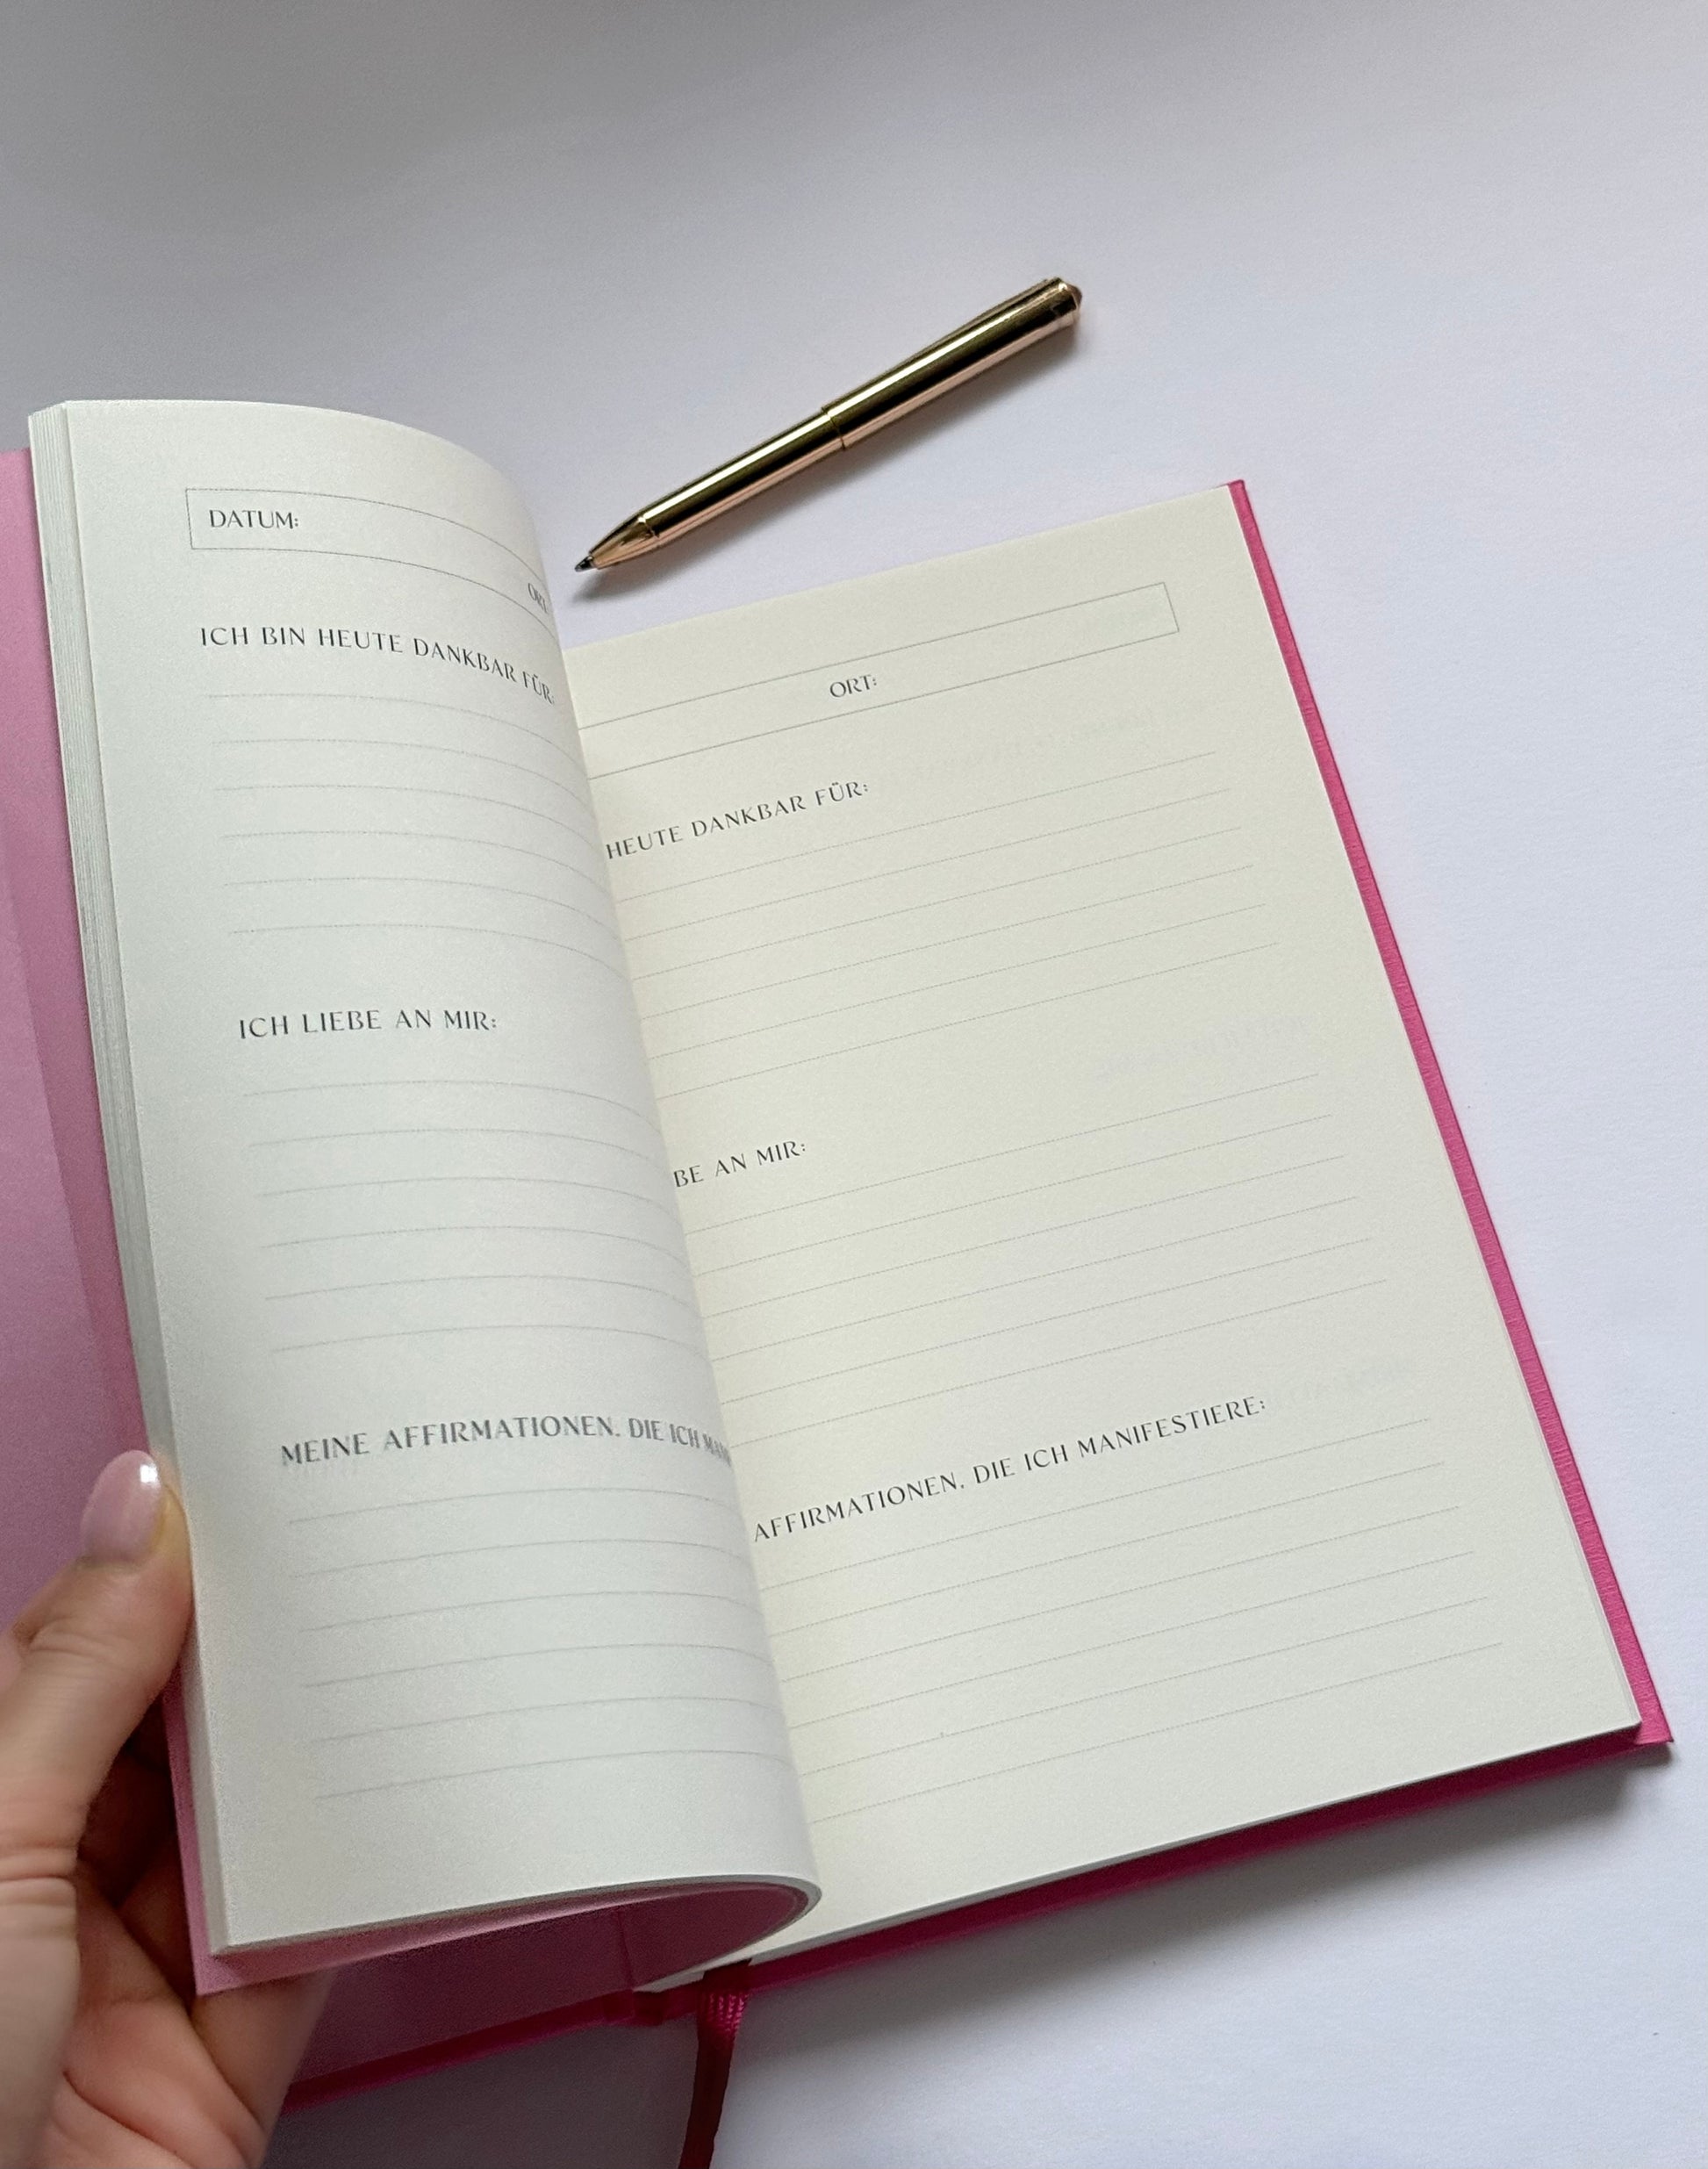 DATUM:
ORT:
ICH BIN HEUTE DANKBAR FÜR:
ICH LIEBE AN MIR:
MEINE AFFIRMATIONEN, DIE ICH
ORT:
HEUTE DANKBAR FÜR:
BE AN MIR:
AFFIRMATIONEN, DIE ICH MANIFESTIERE: